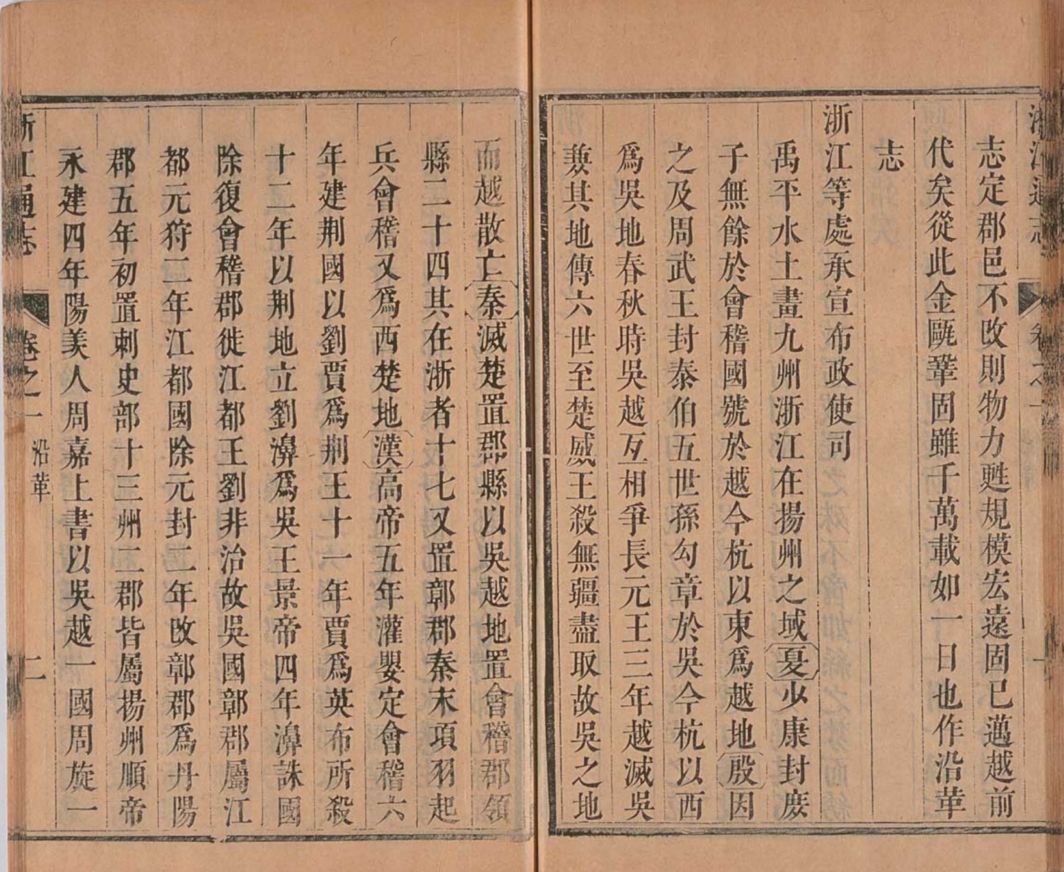 浙江通志 卷之一
志定郡邑不改則物力甦規模宏遠固已邁越前
代矣從此金甌鞏固雖千萬載如一日也作沿革
志
浙江等處承宣布政使司
禹平水土畫九州浙江在揚州之域夏少康封庶
子無餘於會稽國號於越今杭以東爲越地殷因
之及周武王封泰伯五世孫勾章於吳今杭以西
爲吳地春秋時吳越互相爭長元王三年越滅吳
兼其地傳六世至楚威王殺無疆盡取故吳之地
而越散亡秦滅楚置郡縣以吳越地置會稽郡領
縣二十四其在浙者十七又置鄣郡秦末項羽起
兵會稽又爲西楚地漢高帝五年灌嬰定會稽六
年建荆國以劉賈爲荆王十一年賈爲英布所殺
十二年以荆地立劉濞爲吳王景帝四年濞誅國
除復會稽郡徙江都王劉非治故吳國鄣郡屬江
都元狩二年江都國除元封二年改鄣郡爲丹陽
郡五年初置刺史部十三州二郡皆屬揚州順帝
永建四年陽羡人周嘉上書以吳越一國周旋一
浙江通志 卷之一 沿革 二